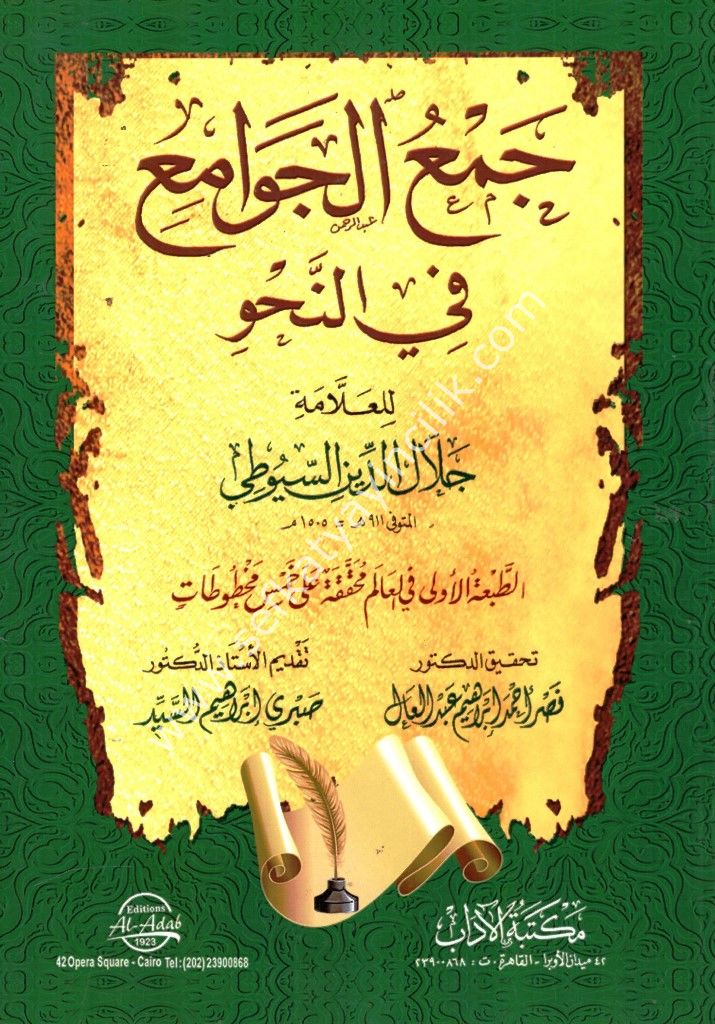 جَمْعُ الجَوَامِعِ
عبدالرحمن
فِي النَّحْوِ
لِلعَلَّامَةِ
جَلَالِ الدِّينِ السُّيُوطِي
المتوفى ٩١١هـ = ١٥٠٥م
الطَّبْعَةُ الأولى في العَالَم مُحَقَّقَة عَلَى خَمْسِ مَخْطُوطَاتٍ
تحقيق الدكتور
نصر أحمد إبراهيم عبد العال
تقديم الأستاذ الدكتور
صبري إبراهيم السيد
www.servatyayincilik.com
Editions
Al-Adab
1923
42 Opera Square - Cairo Tel: (202) 23900868
مكتبة الآداب
٤٢ ميدان الأوبرا - القاهرة ت : ٢٣٩٠٠٨٦٨